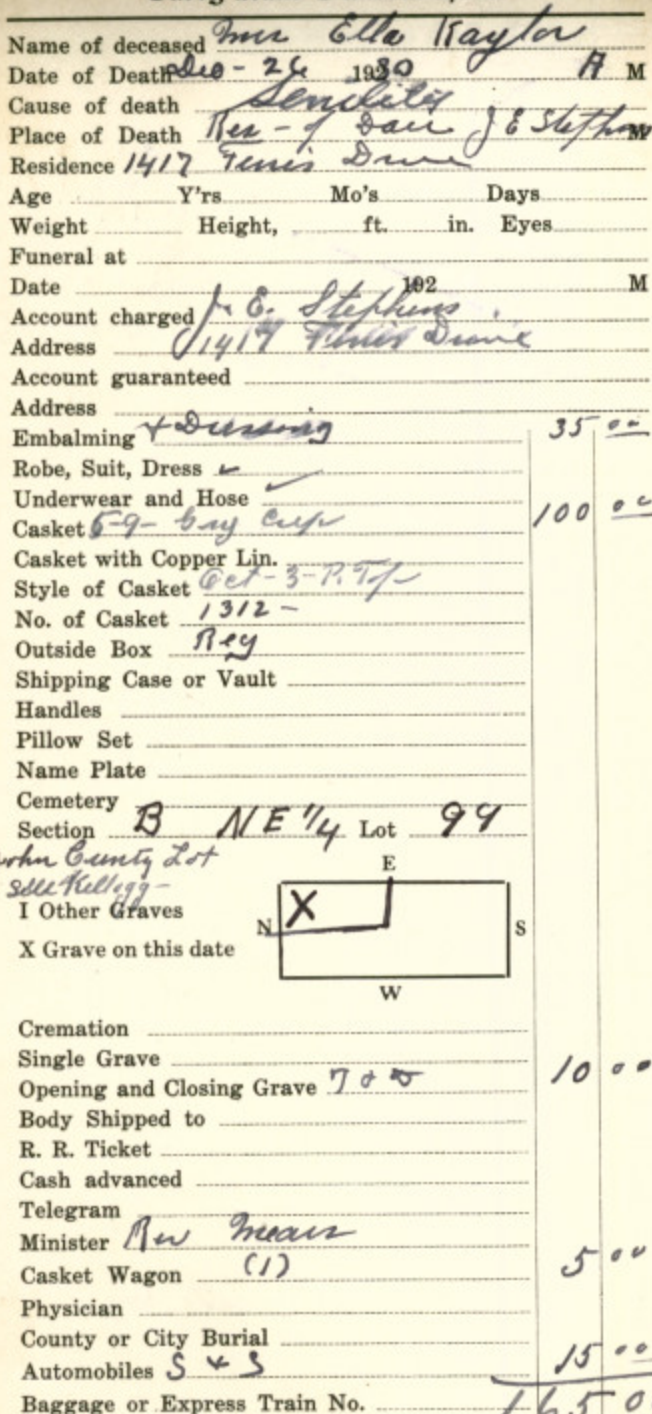 Name of deceased Mrs Ella Kaylor
Date of Death Dec - 26 1930 A M
Cause of death Senility
Place of Death Res - of J E Stephens M
Residence 1417 Drive
Age Y'rs Mo's Days
Weight Height, ft. in. Eyes
Funeral at
Date 192 M
Account charged J. E. Stephens.
Address 1417 Drive
Account guaranteed
Address
Embalming + Dressing 35 00
Robe, Suit, Dress ✓
Underwear and Hose ✓
Casket 5-9- Gry Crep 100 00
Casket with Copper Lin.
Style of Casket Oct - 3 - P. Top
No. of Casket 1312 -
Outside Box Reg
Shipping Case or Vault
Handles
Pillow Set
Name Plate
Cemetery
Section B NE 1/4 Lot 99
John Lot
Kellogg -
I Other Graves
X Grave on this date
E
N X S
W
Cremation
Single Grave
Opening and Closing Grave 10 00
Body Shipped to
R. R. Ticket
Cash advanced
Telegram
Minister Rev Mears
Casket Wagon (1) 5 00
Physician
County or City Burial
Automobiles S & S 15 00
Baggage or Express Train No. 165 0